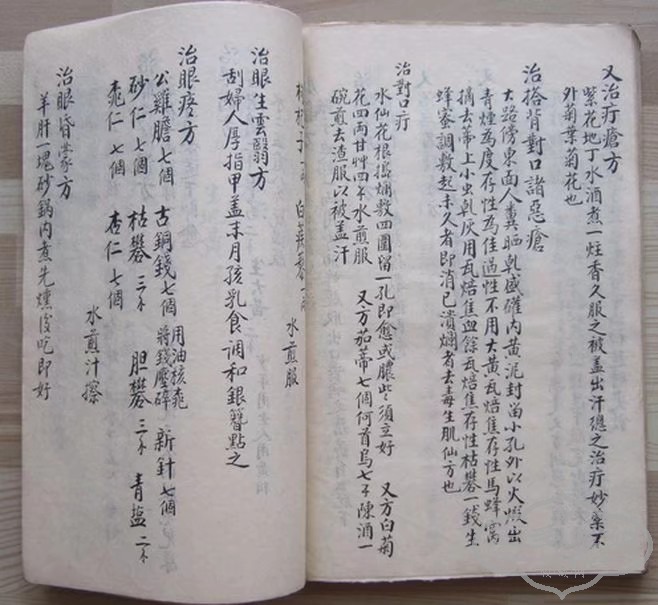 又治疔瘡方
紫花地丁水酒煮一炷香久服之被盖出汗總之治疔妙藥不
外菊葉菊花也
治搭背對口諸惡瘡
大路傍東面人糞晒乾盛礶内黄泥封畄小孔外以火煅出
青煙為度存性為佳過性不用大黄瓦焙焦存性馬蜂窩
摘去蒂上小虫乹灰用瓦焙焦血餘瓦焙焦存性枯礬一錢生
蜂蜜調敷起未久者即消已潰爛者去毒生肌仙方也
治對口疔
水仙花根搗爛敷四圍留一孔即愈或膿出須立好 又方白菊
花四両甘艸四不水煎服 又方茄蒂七個何首烏七不陳酒一
碗煎去渣服以被盖汗
水煎服
治眼生雲翳方
刮婦人厚指甲盖末月孩乳食调和銀簪點之
治眼疼方
公雞膽七個 古銅錢七個 用油核桃將錢壓碎 新針七個
砂仁七個 枯礬三不 胆礬三不 青盐二不
桃仁七個 杏仁七個 水煎汁擦
治眼昏蒙方
羊肝一塊砂鍋内煮先燻後吃即好